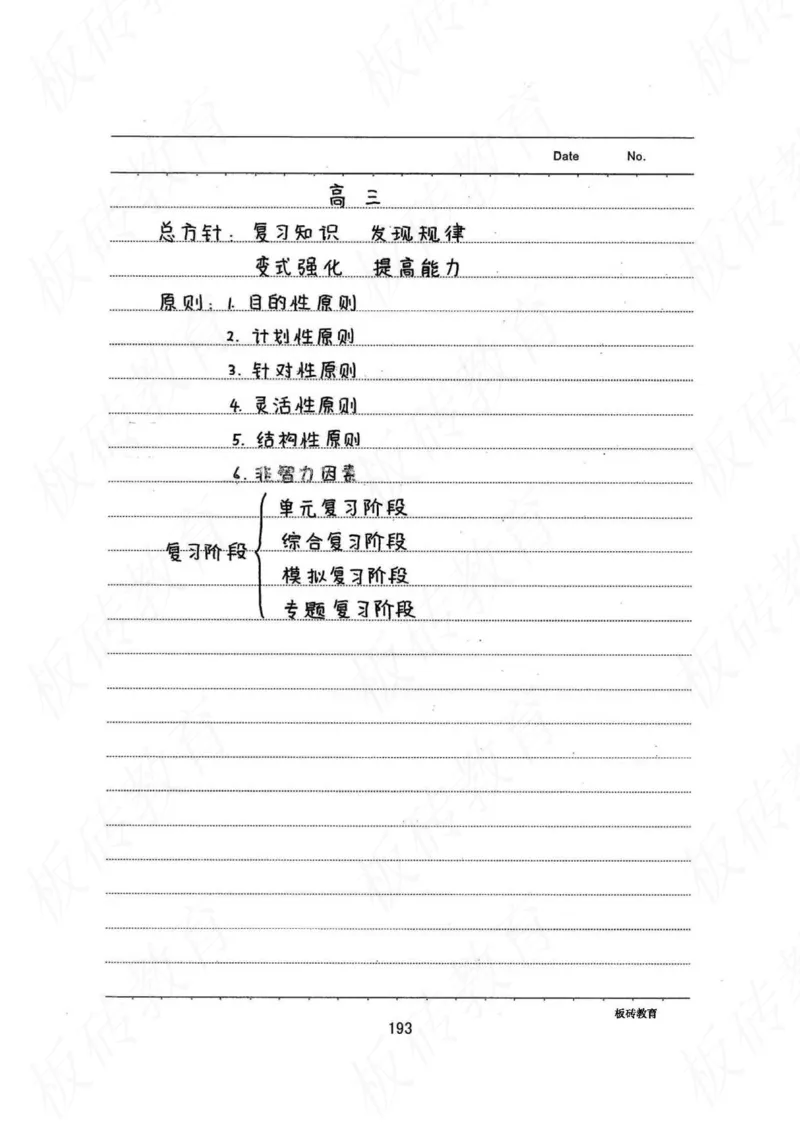 Date No.
高三
总方针：复习知识 发现规律
变式强化 提高能力
原则：1. 目的性原则
2. 计划性原则
3. 针对性原则
4. 灵活性原则
5. 结构性原则
6. 非智力因素
复习阶段
单元复习阶段
综合复习阶段
模拟复习阶段
专题复习阶段
板砖教育
193